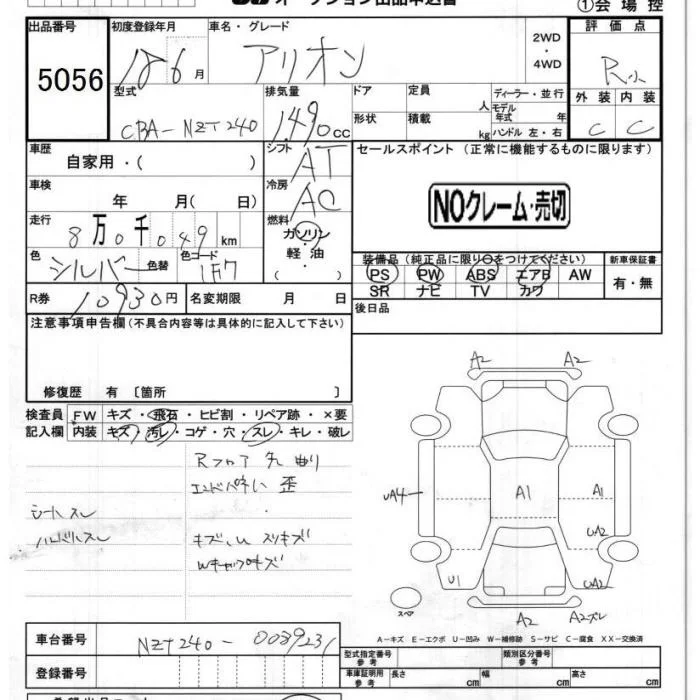 オークション出品申込書
①会場控
出品番号 初度登録年月 車名・グレード 評価点
5056 18 6月 アリオン 2WD・4WD R
外装 内装
C C
型式 排気量 ドア 定員 人 ディーラー・並行
CBA-NZT240 1490cc 形状 積載 kg モデル年式 年 ハンドル 左・右
車歴 シフト セールスポイント (正常に機能するものに限ります)
自家用・( ) AT
車検 冷房
年 月( 日) AC
NOクレーム・売切
走行 燃料
8万0千049km ガソリン・軽油・( )
色 色替 色コード
シルバー 1F7
装備品(純正品に限り○をつけてください) 新車保証書
PS PW ABS エアB AW 有・無
SR ナビ TV カワ
R券 10930円 名変期限 月 日 後日品
注意事項申告欄(不具合内容等は具体的に記入して下さい)
修復歴 有 〔箇所 〕
検査員 FW キズ・飛石・ヒビ割・リペア跡・×要
記入欄 内装 キズ・汚レ・コゲ・穴・スレ・キレ・破レ
Rフロア 先 曲り
エンドパネル 歪
シートスレ
ハンドルスレ
キズ,U スリキズ
Wキャップキズ
A2 A2
UA4 A1 A1
UA2
U1 UA2
スペア
A2 A2ズレ
A-キズ E-エクボ U-凹み W-補修跡 S-サビ C-腐食 XX-交換済
車台番号 NZT240-0039231
登録番号
型式指定番号 参考 類別区分番号 参考
車庫証明用 参考 長さ cm 幅 cm 高さ cm